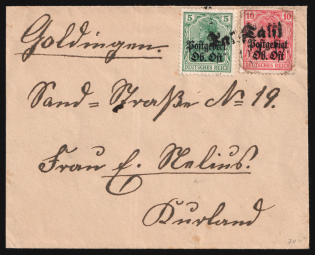 Goldingen.
5 5
Postgebiet
Ob. Ost
DEUTSCHES REICH
10 10
Postgebiet
Ob. Ost
DEUTSCHES REICH
Sand=Straße No 19.
Frau E. Nelius.
Kurland